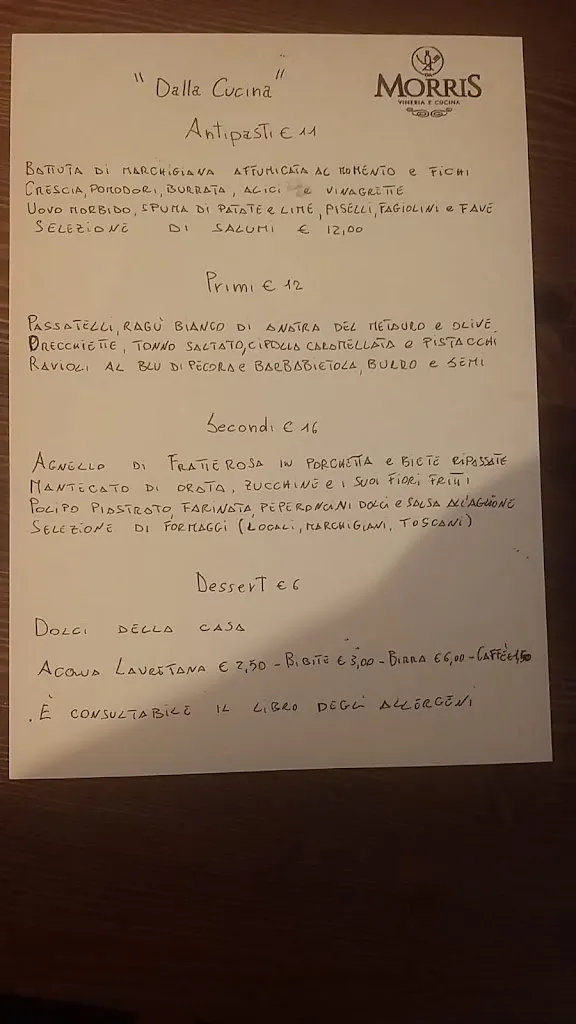 "Dalla Cucina"
DA
MORRIS
VINERIA E CUCINA
Antipasti € 11
BATTUTA DI MARCHIGIANA AFFUMICATA AL MOMENTO e FICHI
CRESCIA, POMODORI, BURRATA, ALICI e VINAGRETTE
UOVO MORBIDO, SPUMA DI PATATE e LIME, PISELLI, FAGIOLINI e FAVE
SELEZIONE DI SALUMI € 12,00
Primi € 12
PASSATELLI, RAGU' BIANCO DI ANATRA DEL METAURO e OLIVE
ORECCHIETTE, TONNO SALTATO, CIPOLLA CARAMELLATA e PISTACCHI
RAVIOLI AL BLU DI PECORA e BARBABIETOLA, BURRO e SEMI
Secondi € 16
AGNELLO DI FRATTE ROSA IN PORCHETTA e BIETE RIPASSATE
MANTECATO DI ORATA, ZUCCHINE e I SUOI FIORI FRITTI
POLIPO PIASTRATO, FARINATA, PEPERONCINI DOLCI e SALSA ALL'AGLIONE
SELEZIONE DI FORMAGGI (LOCALI, MARCHIGIANI, TOSCANI)
Dessert € 6
DOLCI DELLA CASA
ACQUA LAURETANA € 2,50 - BIBITE € 3,00 - BIRRA € 6,00 - CAFFÈ € 1,50
. È CONSULTABILE IL LIBRO DEGLI ALLERGENI